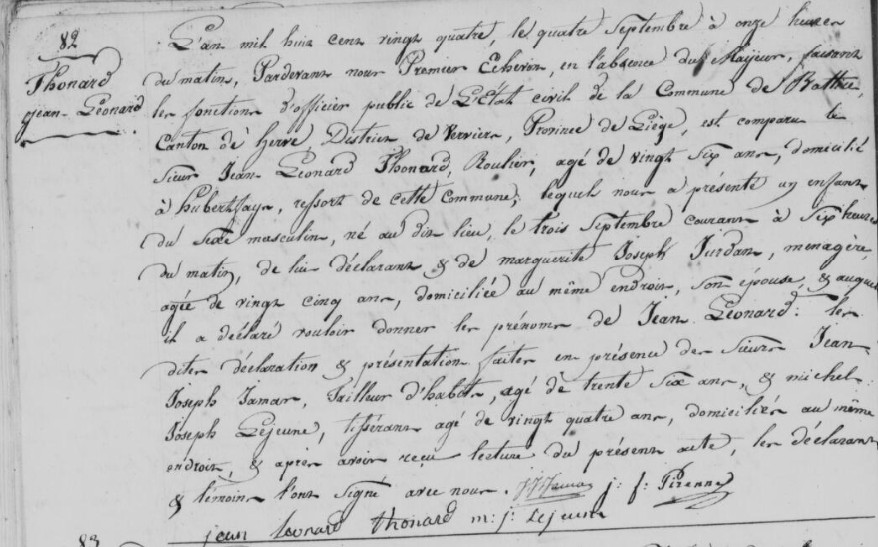 82
Thonard
jean-Léonard
L'an mil huit cent vingt quatre, le quatre Septembre à onze heures
du matin, Pardevant nous Premier Echevin, en l'absence du Maïjeur, faisant
les fonctions d'officier public de L'Etat civil de la Commune de Battice,
Canton de herve, District de Verviers, Province de Liège, est comparu le
Sieur Jean Léonard Thonard, Roulier, agé de vingt six ans, domicilié
à hubertfays, ressort de cette Commune, lequel nous a présenté un enfant
du sexe masculin, né au dit lieu, le trois Septembre courant à Six heures
du matin, de lui déclarant & de marguerite Joseph Jurdan, menagère,
agée de vingt cinq ans, domiciliée au même endroit, son épouse, & auquel
il a déclaré vouloir donner les prénoms de Jean Léonard: les
dites déclaration & présentation faites en présence des Sieurs Jean
Joseph Jamar, Tailleur d'habits, agé de trente Six ans, & michel
Joseph Lejeune, tisserant agé de vingt quatre ans, domiciliés au même
endroit, & après avoir reçu lecture du présent acte, les déclarant
& témoins l'ont signé avec nous. JJJamar j: f: Pirenne
jean leonard thonard m: j: Lejeune
83